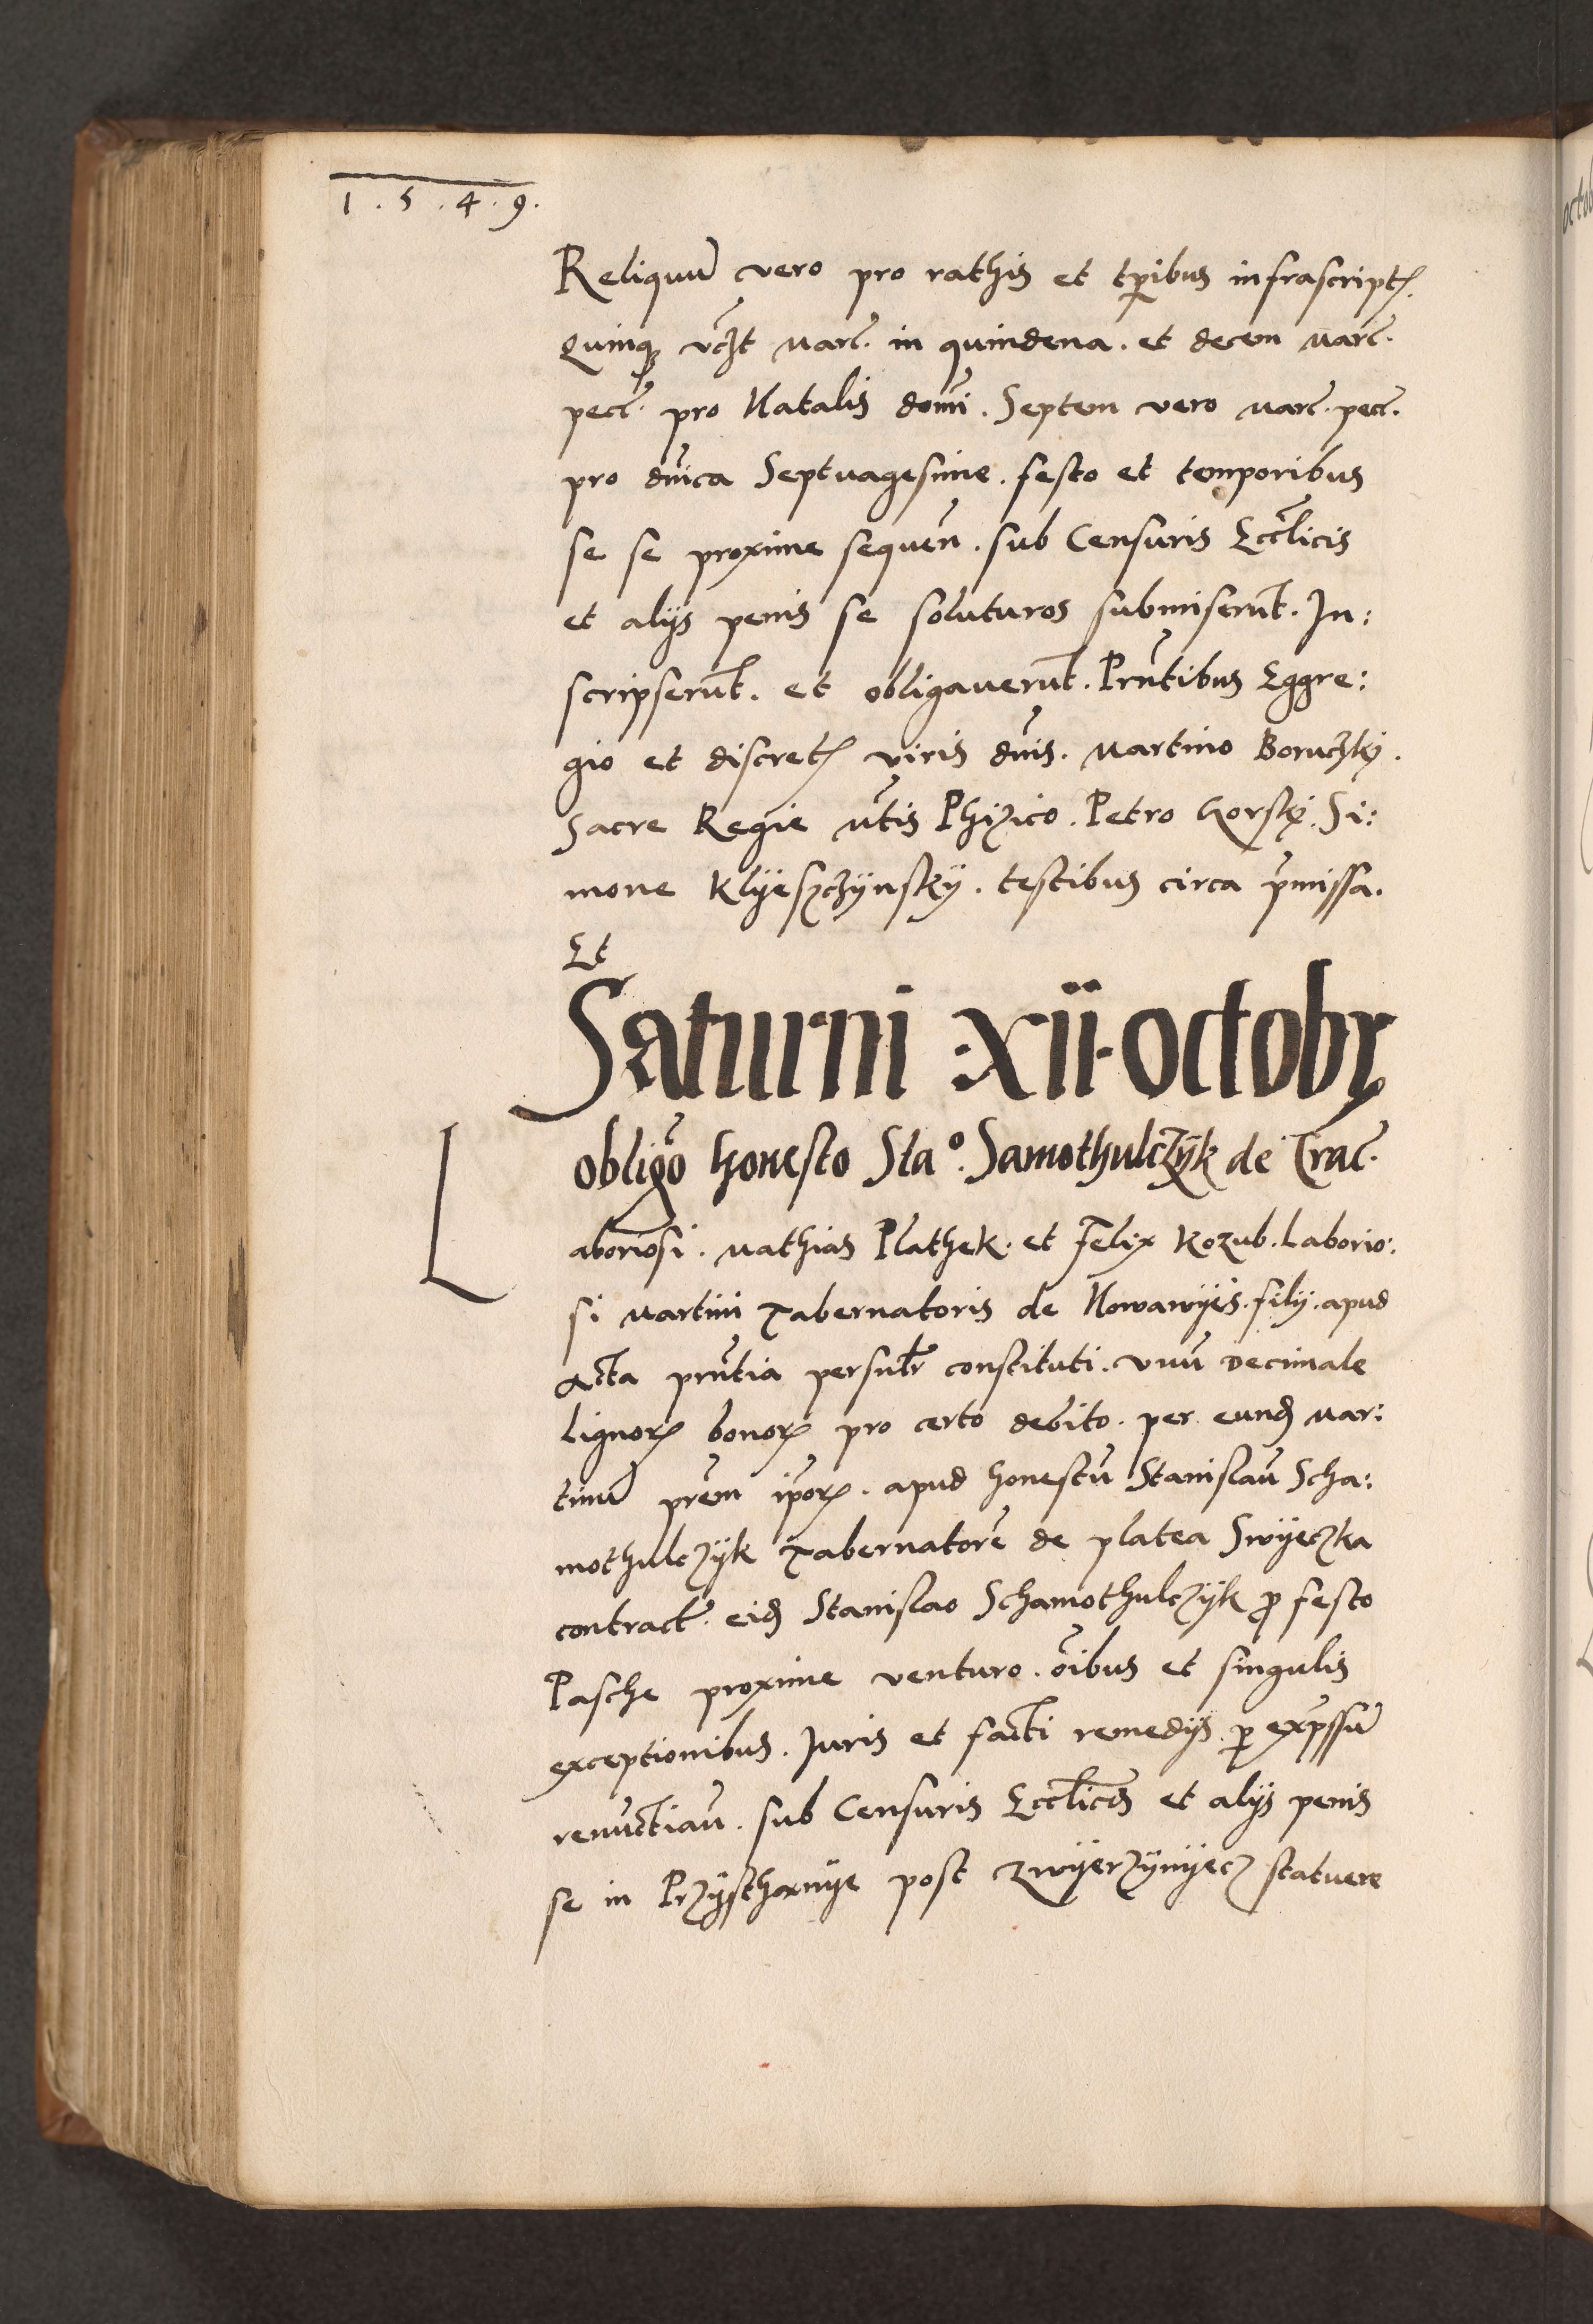 1.5.4.9.
Reliquũ vero pro rathis et tp̃ibus infrascript.
Quinq vc̃zt Marc̃. in quindena. et decem Marc̃.
pecc̃. pro Natalis domĩ. Septem vero Marc̃. pecc̃.
pro dñica Septuagesime. festo et temporibus
se se proxime sequeñ. sub Censuris Ecc̃licis
et alijs penis se soluturos submiserũt. In:
scripserũt. et obligauerũt. Prñtibus Eggre:
gio et discret viris dñis. Martino Boruczky.
Sacre Regie Mtis Phizico. Petro Gorsky. Si:
mone Klyeszczÿnskÿ. testibus circa p̃missa.
Et
Saturni xii octobr
obligõ honesto Sta°. Samothulczÿk de Crac̃.
Laboriosi. Mathias Plathek. et Felix Kozub. Laborio:
si Martini Tabernatoris de Nowawÿes. filij. apud
Acta prñtia personlr constituti. vnũ decimale
lignor bonor pro certo debito. per eund Mar:
tinũ prẽm ipõr. apud honestũ Stanislaũ Scha:
mothulczÿk Tabernatorẽ de platea Swÿeczka
contract. eid Stanislao Schamothulczÿk p festo
Pasche proxime venturo. õibus et singulis
exceptionibus. Juris et facti remedijs. p exp̃ssũ
renũctiaũ. sub Censuris Ecc̃licis et alijs penis
se in Przÿstharnÿe post Zwÿerzÿnÿecz statuere